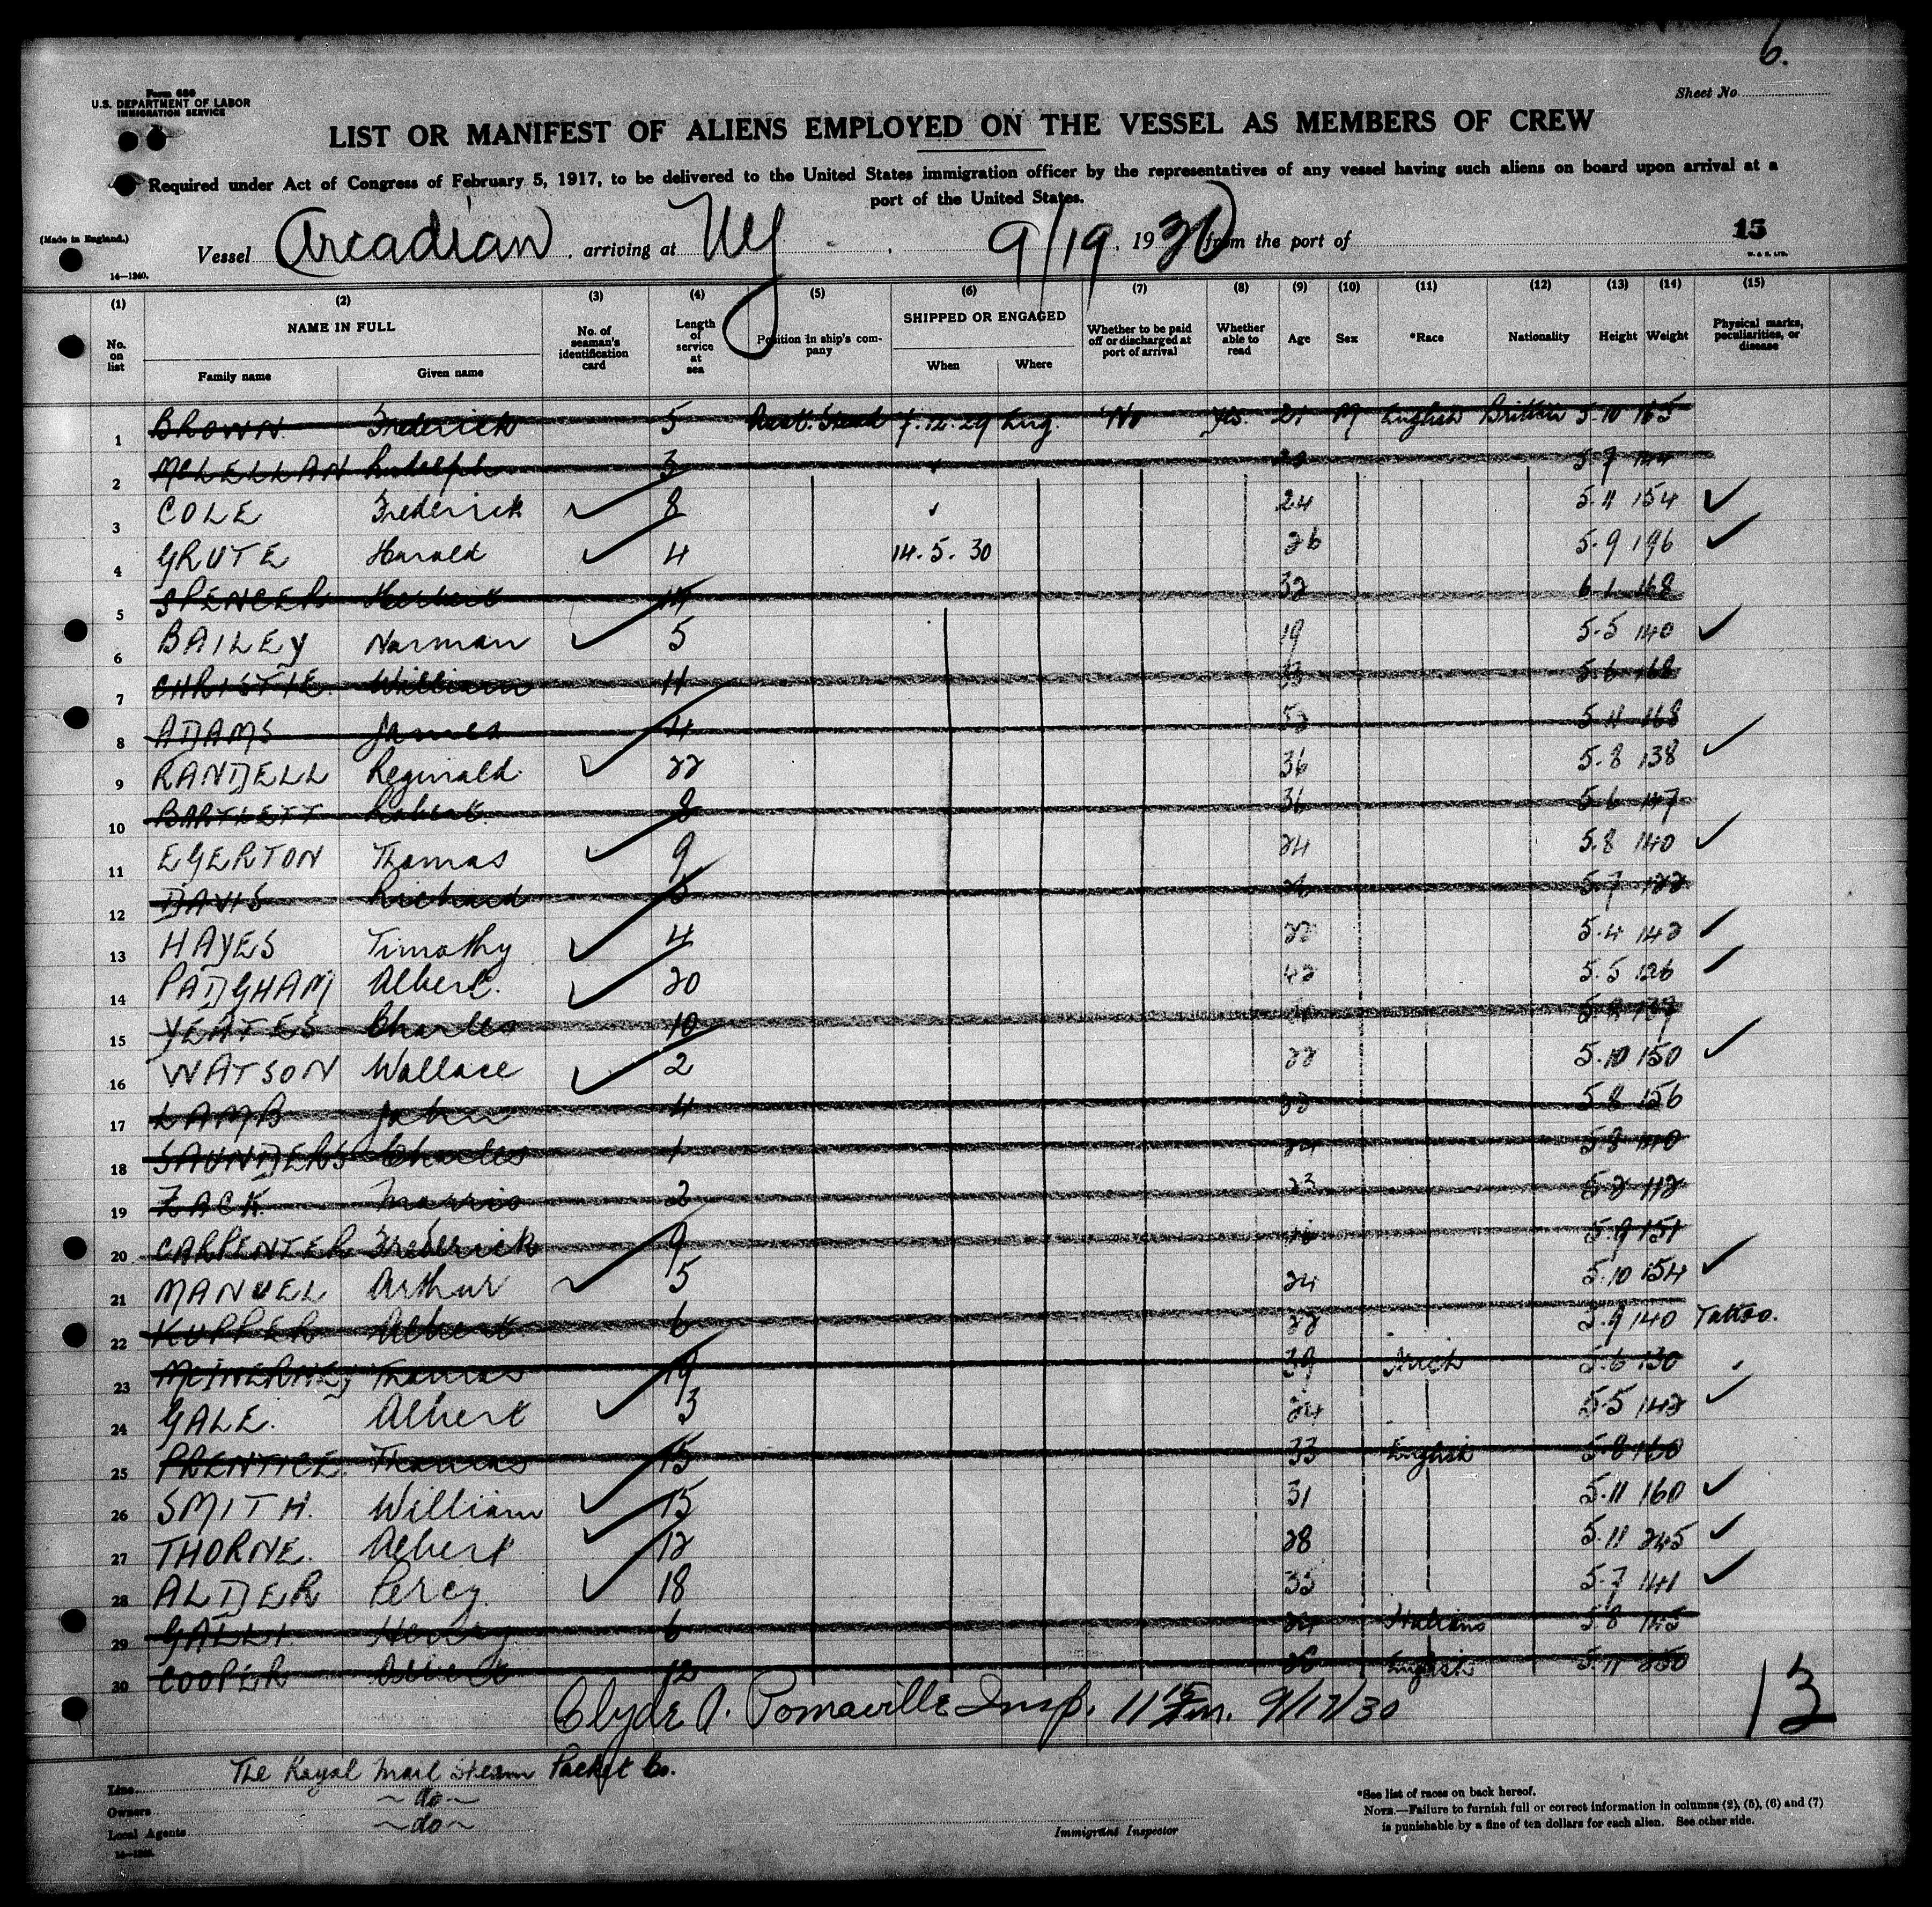 6.
Form 680
U.S. DEPARTMENT OF LABOR
IMMIGRATION SERVICE
Sheet No
LIST OR MANIFEST OF ALIENS EMPLOYED ON THE VESSEL AS MEMBERS OF CREW
Required under Act of Congress of February 5, 1917, to be delivered to the United States immigration officer by the representatives of any vessel having such aliens on board upon arrival at a
port of the United States.
(Made in England.)
Vessel Arcadian, arriving at NY 9/19, 1930 from the port of
15
14—1240.
(1) (2) (3) (4) (5) (6) (7) (8) (9) (10) (11) (12) (13) (14) (15)
No. on list NAME IN FULL Family name Given name No. of seaman's identification card Length of service at sea Position in ship's company SHIPPED OR ENGAGED When Where Whether to be paid off or discharged at port of arrival Whether able to read Age Sex *Race Nationality Height Weight Physical marks, peculiarities, or disease
1 BROWN Frederick 5 Asst. Stewd 7.12.29 Eng. No Yes. 21 M English British 5.10 165
2 McLELLAN Rudolph 3 5.7 144
3 COLE Frederick ✓ 8 24 5.11 154 ✓
4 GRUTE Harold ✓ 4 14.5.30 26 5.9 196 ✓
5 SPENCER Herbert 14 32 6.1 168
6 BAILEY Norman ✓ 5 19 5.5 140 ✓
7 CHRISTIE William 11 33 5.6 168
8 ADAMS James 4 52 5.11 168
9 RANDELL Reginald ✓ 22 36 5.8 138 ✓
10 BARTLETT Robert 8 36 5.6 147
11 EGERTON Thomas ✓ 9 24 5.8 140 ✓
12 DAVIS Richard 5.7 122
13 HAYES Timothy ✓ 4 22 5.4 142 ✓
14 PADGHAM Albert. ✓ 20 42 5.5 126 ✓
15 YEATES Charles 10
16 WATSON Wallace ✓ 2 22 5.10 150 ✓
17 LAMB John 4 5.8 156
18 SAUNDERS Charles 1 24 140
19 ZACK Morris 2 23 5.2 112
20 CARPENTER Frederick 9 5.9 151
21 MANUEL Arthur ✓ 5 24 5.10 154 ✓
22 KUPPER Albert 6 22 5.9 140 Tattoo.
23 McINERNEY Thomas 19 39 Irish 5.6 130
24 GALE. Albert ✓ 3 24 5.5 142 ✓
25 PRENTICE Thomas 15 33 English 5.8 160
26 SMITH. William ✓ 15 31 5.11 160 ✓
27 THORNE. Albert ✓ 12 28 5.11 245 ✓
28 ALDER Percy. ✓ 18 35 5.7 141 ✓
29 GALLI Henry 6 24 Italians 5.8 145
30 COOPER Albert 12 28 English 5.11 250
Clyde A. Pomaville Insp. 11 15 9/17/30
13
Line The Royal Mail Steam Packet Co.
Owners ~do~
Local Agents ~do~
Immigrant Inspector
*See list of races on back hereof.
NOTE.—Failure to furnish full or correct information in columns (2), (5), (6) and (7)
is punishable by a fine of ten dollars for each alien. See other side.